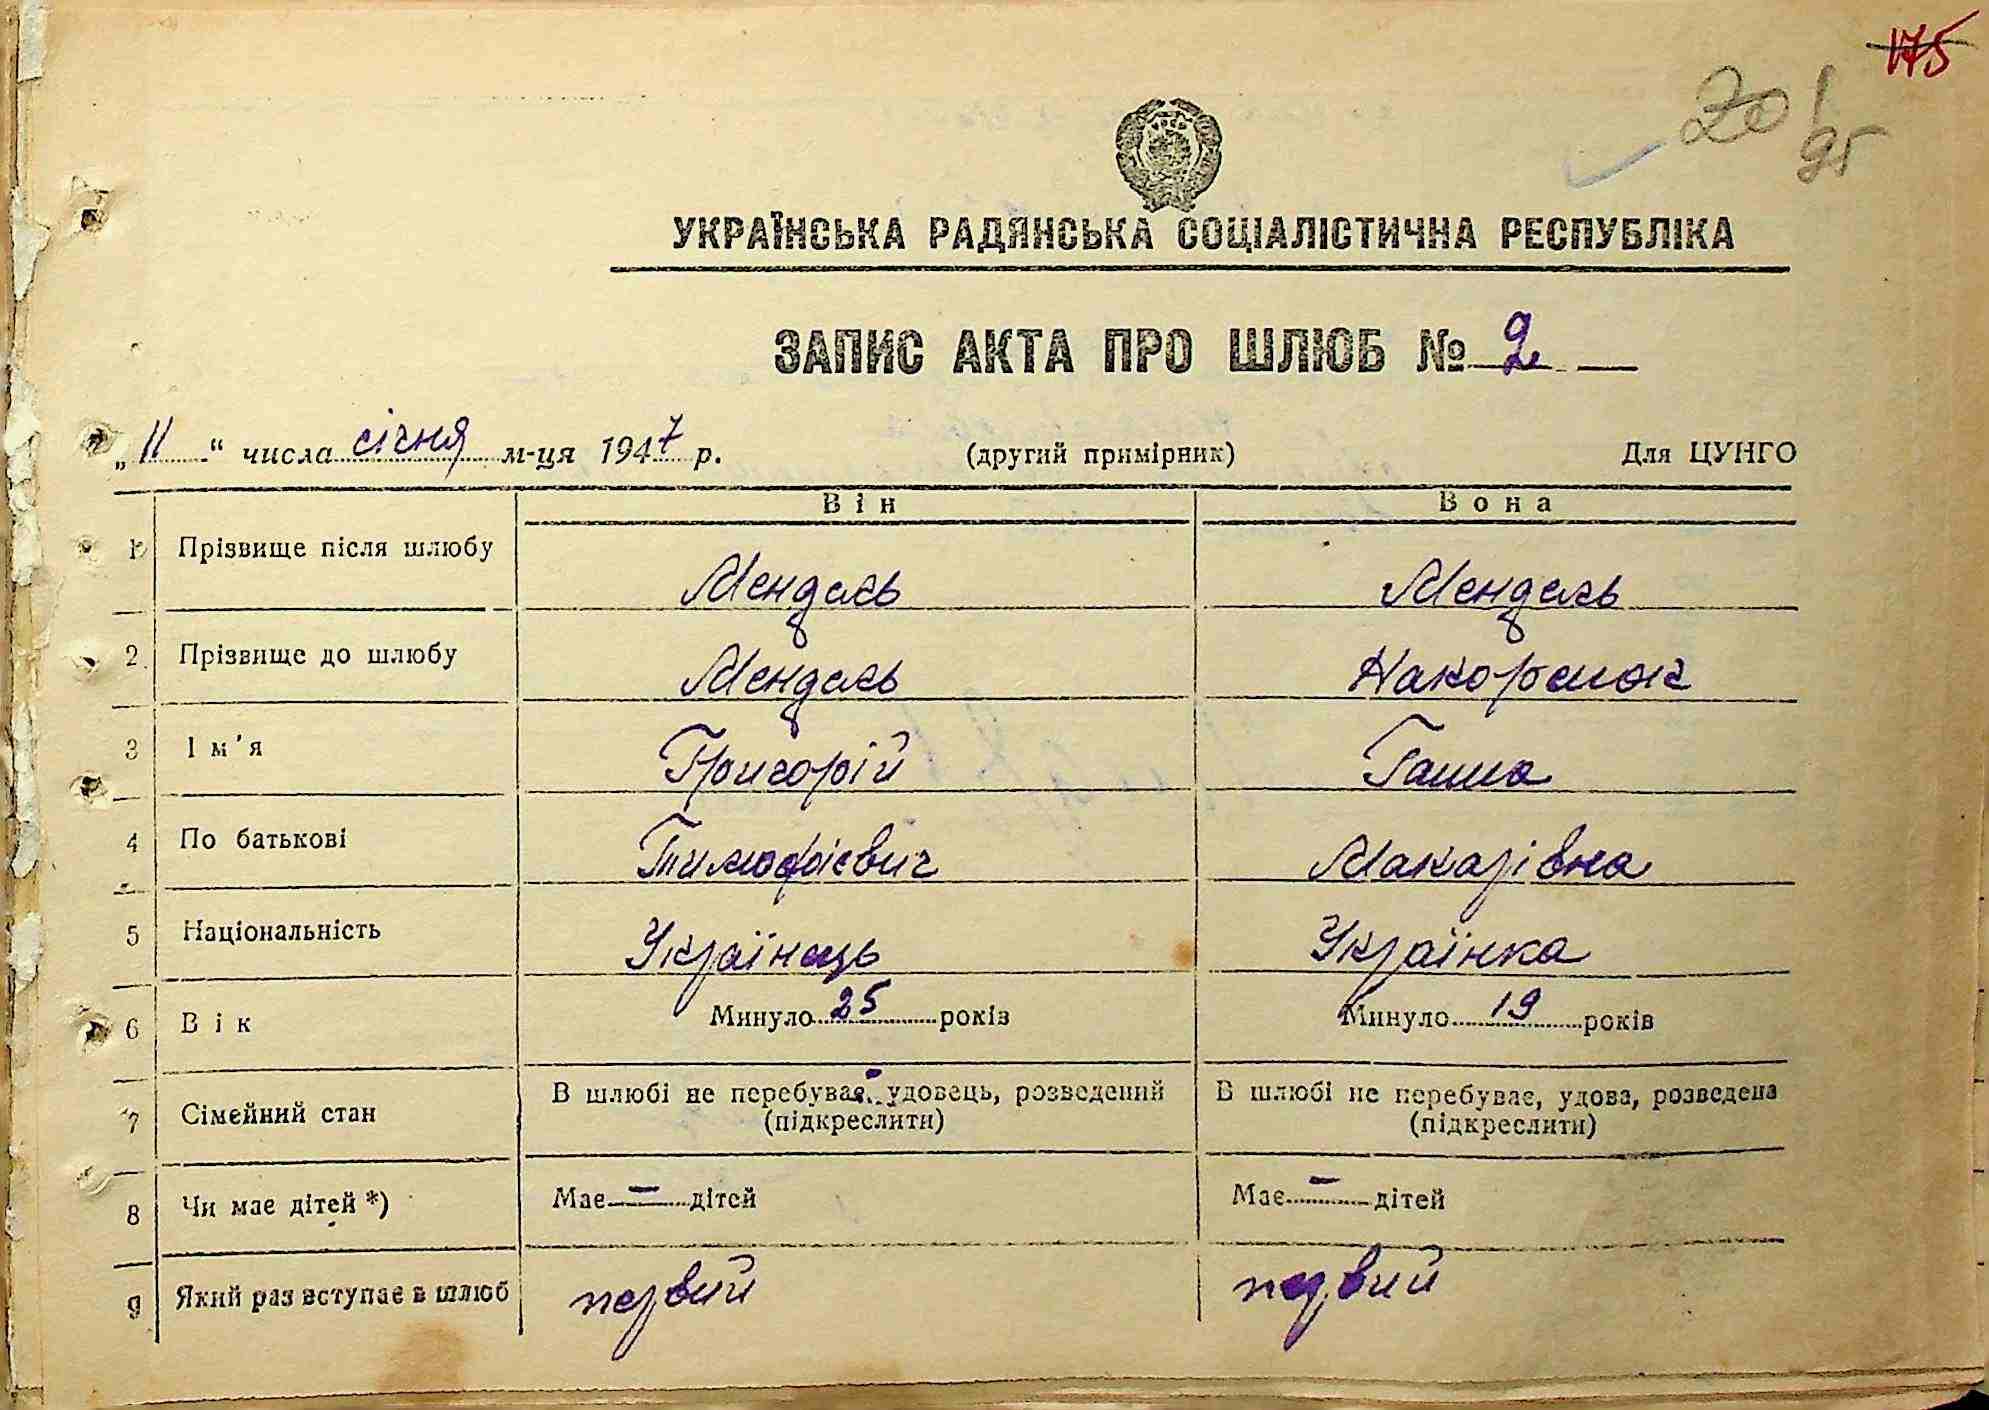 175
20 1
95
УКРАЇНСЬКА РАДЯНСЬКА СОЦІАЛІСТИЧНА РЕСПУБЛІКА
ЗАПИС АКТА ПРО ШЛЮБ № 2
„11“ числа січня м-ця 1947 р. (другий примірник) Для ЦУНГО
Він Вона
1 Прізвище після шлюбу Мендель Мендель
2 Прізвище до шлюбу Мендель Накоренок
3 Ім'я Григорій Ганна
4 По батькові Тимофієвич Макарівна
5 Національність Українець Українка
6 Вік Минуло 25 років Минуло 19 років
7 Сімейний стан В шлюбі не перебуває, удовець, розведений В шлюбі не перебуває, удова, розведена
(підкреслити) (підкреслити)
8 Чи має дітей *) Має — дітей Має — дітей
9 Який раз вступає в шлюб первий первий